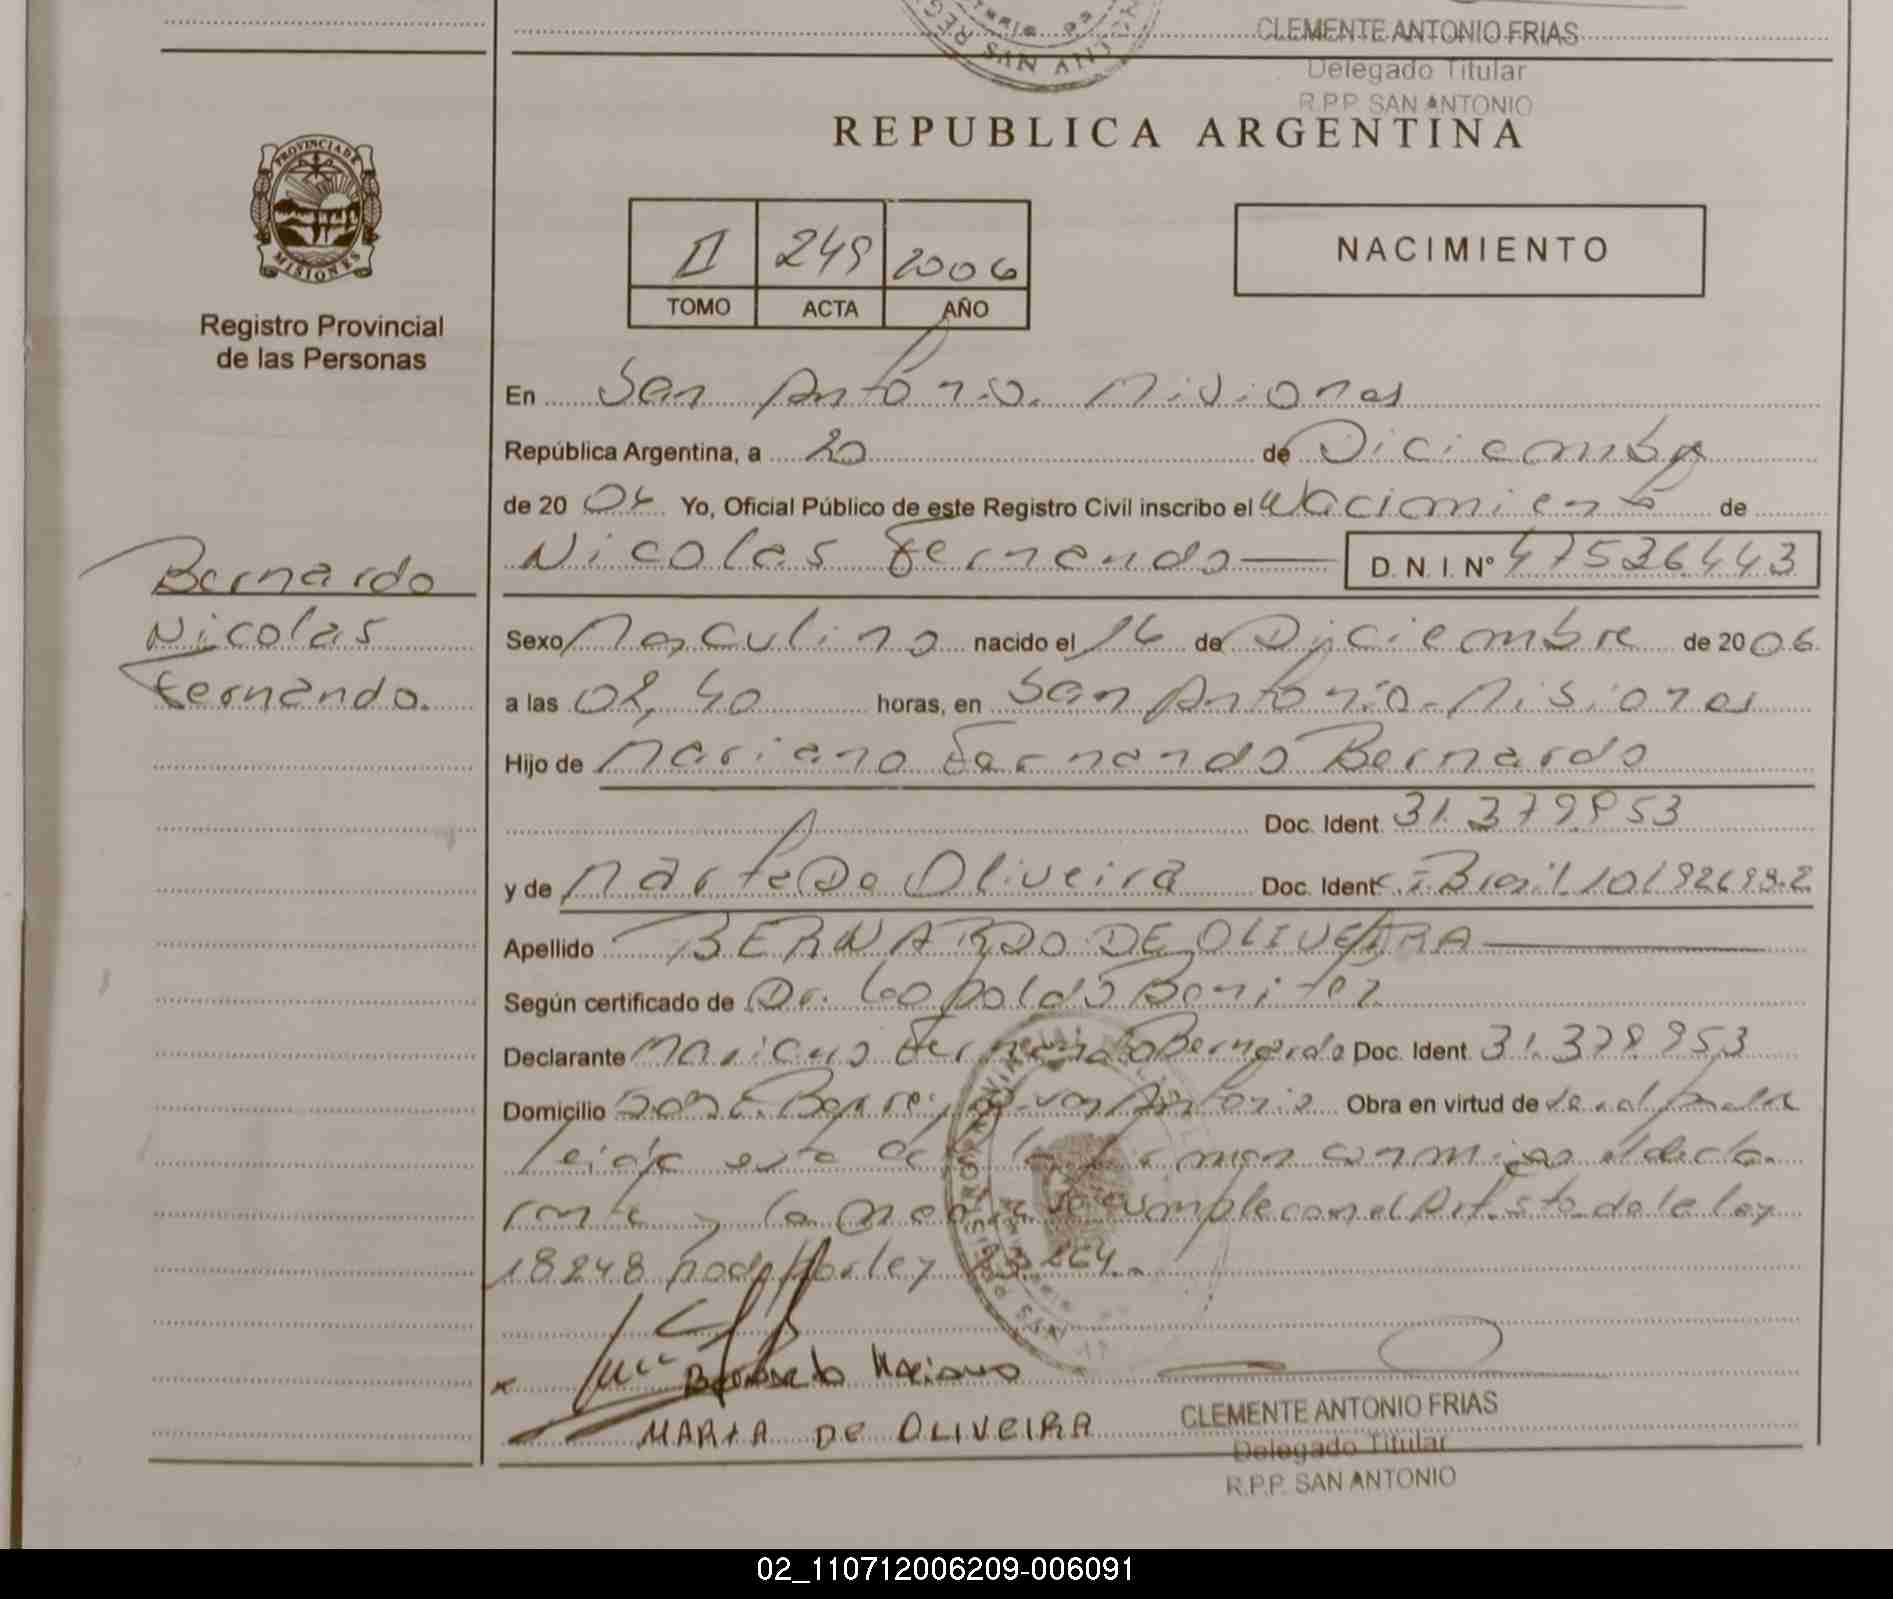 CLEMENTE ANTONIO FRIAS
Delegado Titular
R.P.P. SAN ANTONIO
REPUBLICA ARGENTINA
PROVINCIA DE
MISIONES
Registro Provincial
de las Personas
II 249 2006
TOMO ACTA AÑO
NACIMIENTO
En San Antonio. Misiones
República Argentina, a 20 de Diciembre
de 20 06 Yo, Oficial Público de este Registro Civil inscribo el Nacimiento de
Nicolas Fernando D. N. I. Nº 47526443
Bernardo
Nicolas
Fernando.
Sexo Masculino nacido el 16 de Diciembre de 2006
a las 02,40 horas, en San Antonio - Misiones
Hijo de Mariano Fernando Bernardo
Doc. Ident. 31.379.953
y de Marta De Oliveira Doc. Ident. Brasil
Apellido BERNARDO DE OLIVEIRA
Según certificado de Dr. Leopoldo Benitez
Declarante Mariano Fernando Bernardo Doc. Ident. 31.379.953
Domicilio San Antonio Obra en virtud de
Leida esta acta la firman conmigo el decla-
rante y la madre se cumple con el Art. 5to de la ley
18248 modif por ley 23.264.-
Bernardo Mariano
MARTA DE OLIVEIRA
CLEMENTE ANTONIO FRIAS
Delegado Titular
R.P.P. SAN ANTONIO
02_110712006209-006091